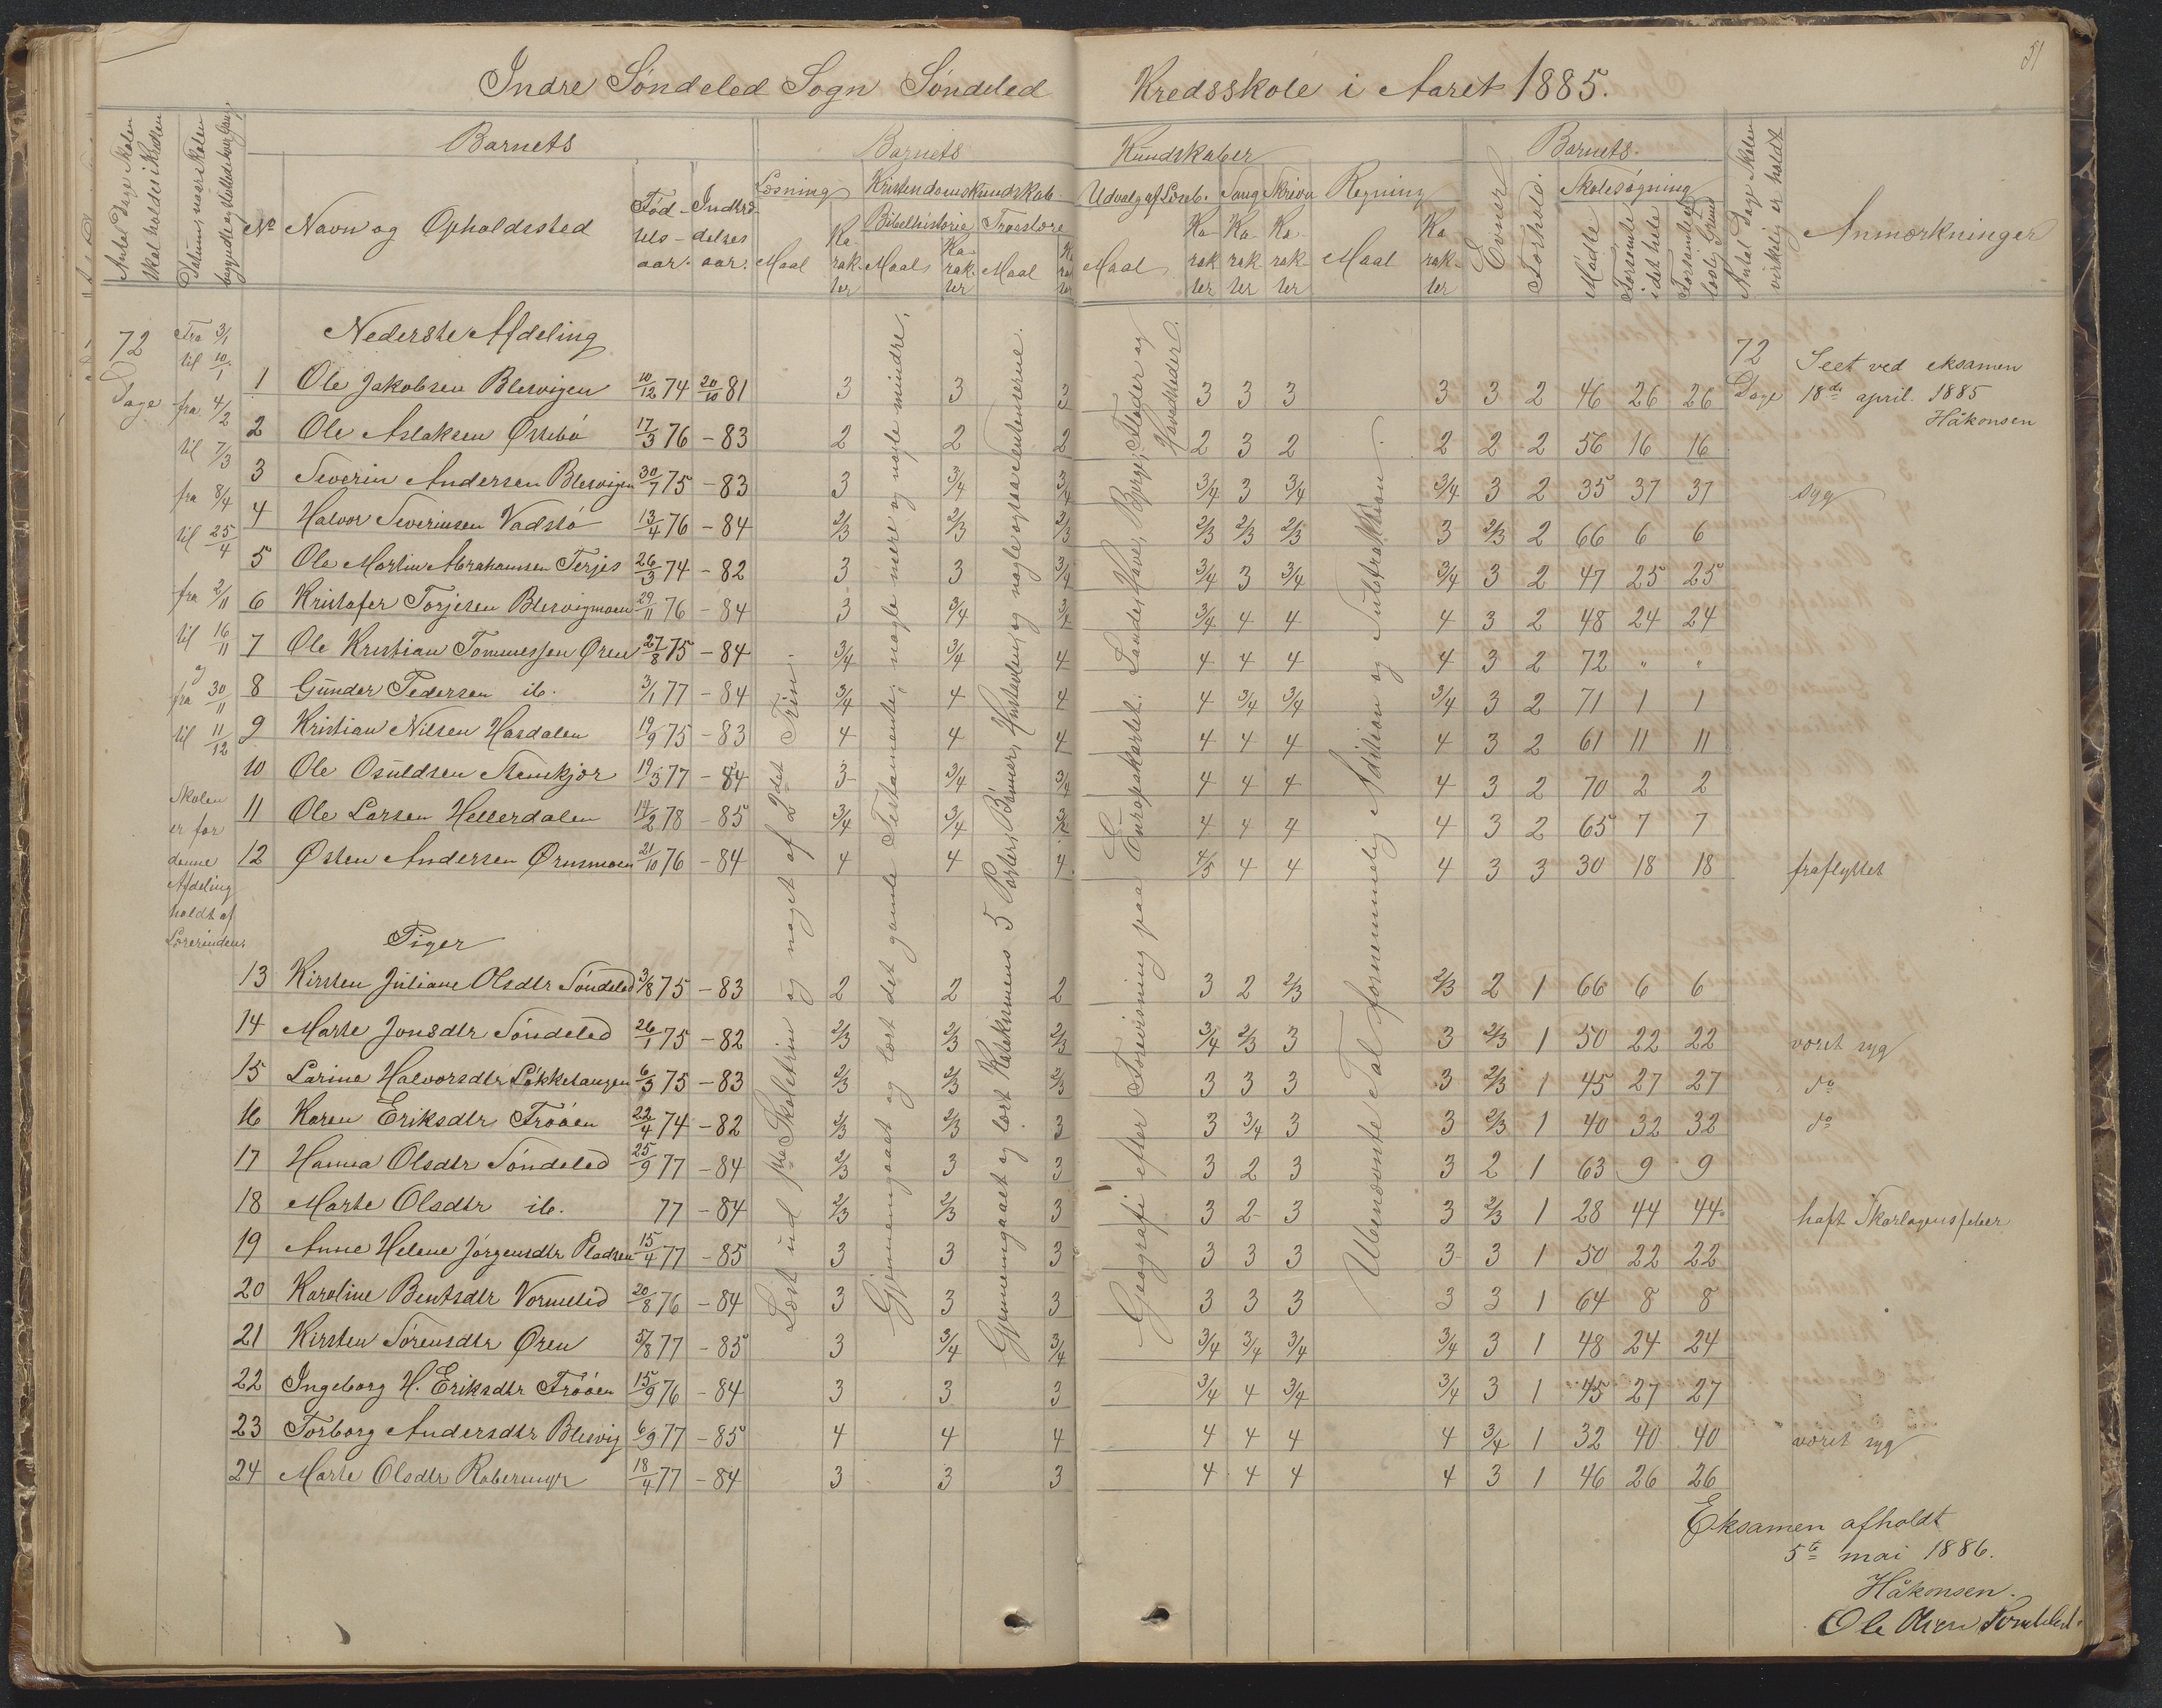 51
Indre Søndeled Sogn Søndeled Kredsskole i Aaret 1885.
Antal Dage Skolen skal holdes i Kredsen
Datum, naar Skolen begyndte og sluttede hver Gang
Barnets
No
Navn og Opholdssted
Fødselsaar.
Indtrædelsesaar.
Barnets Kundskaber
Læsning
Maal
Karakter
Kristendomskundskab.
Bibelhistorie
Maal
Karakter
Troeslære
Maal
Karakter
Udvalg af Læseb.
Maal
Karakter
Sang
Karakter
Skrivn
Karakter
Regning
Maal
Karakter
Barnets.
Evner
Forhold.
Skolesøgning
Mødte
Forsømte i det hele
Forsømte af lovlig Grund
Antal Dage Skolen virkelig er holdt
Anmærkninger
72 Dage
Fra 3/1
til 10/1
fra 4/2
til 7/3
fra 8/4
til 25/4
fra 2/11
til 16/11
og
fra 30/11
til 11/12
Skolen
er for
denne
Afdeling
holdt af
Lærerinden.
Læst ud 1ste Skoletrin og noget af 2det Trin.
Gjennemgaaet og lært det gamle Testamente; nogle mere og nogle mindre.
Gjennemgaaet og lært Katekismens 5 Parter, Bønner, Hustavlen, og nogle ogsaa Sentenserne.
Geografi efter Forevisning paa Europakartet: Lande, Have, Bjerge, Floder og Hovedstæder.
Ubenævnte Tal fornemmelig Adition og Subtraktion.
Nederste Afdeling
1 Ole Jakobsen Blesvigen 10/12 74 20/10 81 3 3 3 3 3 3 3 3 2 46 26 26
72 Dage
Seet ved eksamen
18de april. 1885
Håkonsen
2 Ole Aslaksen Østebø 17/3 76 - 83 2 2 2 2 3 2 2 2 2 56 16 16
3 Severin Andersen Blesvigen 30/7 75 - 83 3 3/4 3/4 3/4 3 3/4 3/4 3 2 35 37 37 syg
4 Halvor Severinsen Vadstø 13/4 76 - 84 2/3 2/3 2/3 2/3 2/3 2/3 3 2/3 2 66 6 6
5 Ole Martin Abrahamsen Terjes 26/3 74 - 82 3 3 3/4 3/4 3 3/4 3/4 3 2 47 25 25
6 Kristofer Torjesen Blesvigmoen 29/11 76 - 84 3 3/4 3/4 3/4 4 4 4 3 2 48 24 24
7 Ole Kristian Tommessen Øren 27/8 75 - 84 3/4 3/4 4 4 4 4 4 3 2 72 " "
8 Gunder Pedersen ib. 3/1 77 - 84 3/4 4 4 4 3/4 3/4 3/4 3 2 71 1 1
9 Kristian Nilsen Hasdalen 19/9 75 - 83 4 4 4 4 4 4 4 3 2 61 11 11
10 Ole Osuldsen Stenskjær 19/3 77 - 84 3 3/4 3/4 4 4 4 4 3 2 70 2 2
11 Ole Larsen Hellerdalen 14/2 78 - 85 3/4 3/4 4 4 4 4 3 2 65 7 7
12 Østen Andersen Ørnsmoen 21/10 76 - 84 4 4 4 4/5 4 4 4 3 3 30 18 18 fraflyttet
Piger
13 Kirsten Juliane Olsdtr Søndeled 3/8 75 - 83 2 2 2 3 2 2/3 2/3 2 1 66 6 6
14 Marte Jonsdtr Søndeled 26/1 75 - 82 2/3 2/3 2/3 3/4 2/3 3 3 2/3 1 50 22 22 været syg
15 Larine Halvorsdtr Løkketangen 6/3 75 - 83 2/3 2/3 2/3 3 3 3 3 2/3 1 45 27 27 do
16 Karen Eriksdtr Frøåen 22/4 74 - 82 2/3 2/3 3 3 3/4 3 3 2/3 1 40 32 32 do
17 Hanna Olsdtr Søndeled 25/9 77 - 84 2/3 3 3 3 2 3 3 2 1 63 9 9
18 Marte Olsdtr ib. 77 - 84 2/3 2/3 3 3 2 3 3 2/3 1 28 44 44 haft Skarlagensfeber
19 Anne Helene Jørgensdtr Pladsen 15/4 77 - 85 3 3 3 3 3 3 3 3 1 50 22 22
20 Karoline Bentsdtr Vormelid 20/8 76 - 84 3 3 3 3 3 3 3 3 1 64 8 8
21 Kirsten Sørensdtr Øren 5/8 77 - 85 3 3/4 3/4 3/4 3/4 3/4 3/4 3 1 48 24 24
22 Ingeborg H. Eriksdtr Frøåen 15/9 76 - 84 3 3 3 3/4 4 3/4 3/4 3 1 45 27 27
23 Torborg Andersdtr Blesvig 6/9 77 - 85 4 4 4 4 4 4 4 3/4 1 32 40 40 været syg
24 Marte Olsdtr Rabersmyr 18/4 77 - 84 3 3 3 4 4 4 4 3 1 46 26 26
Eksamen afholdt
5te mai 1886.
Håkonsen.
Ole Olsen Søndeled.